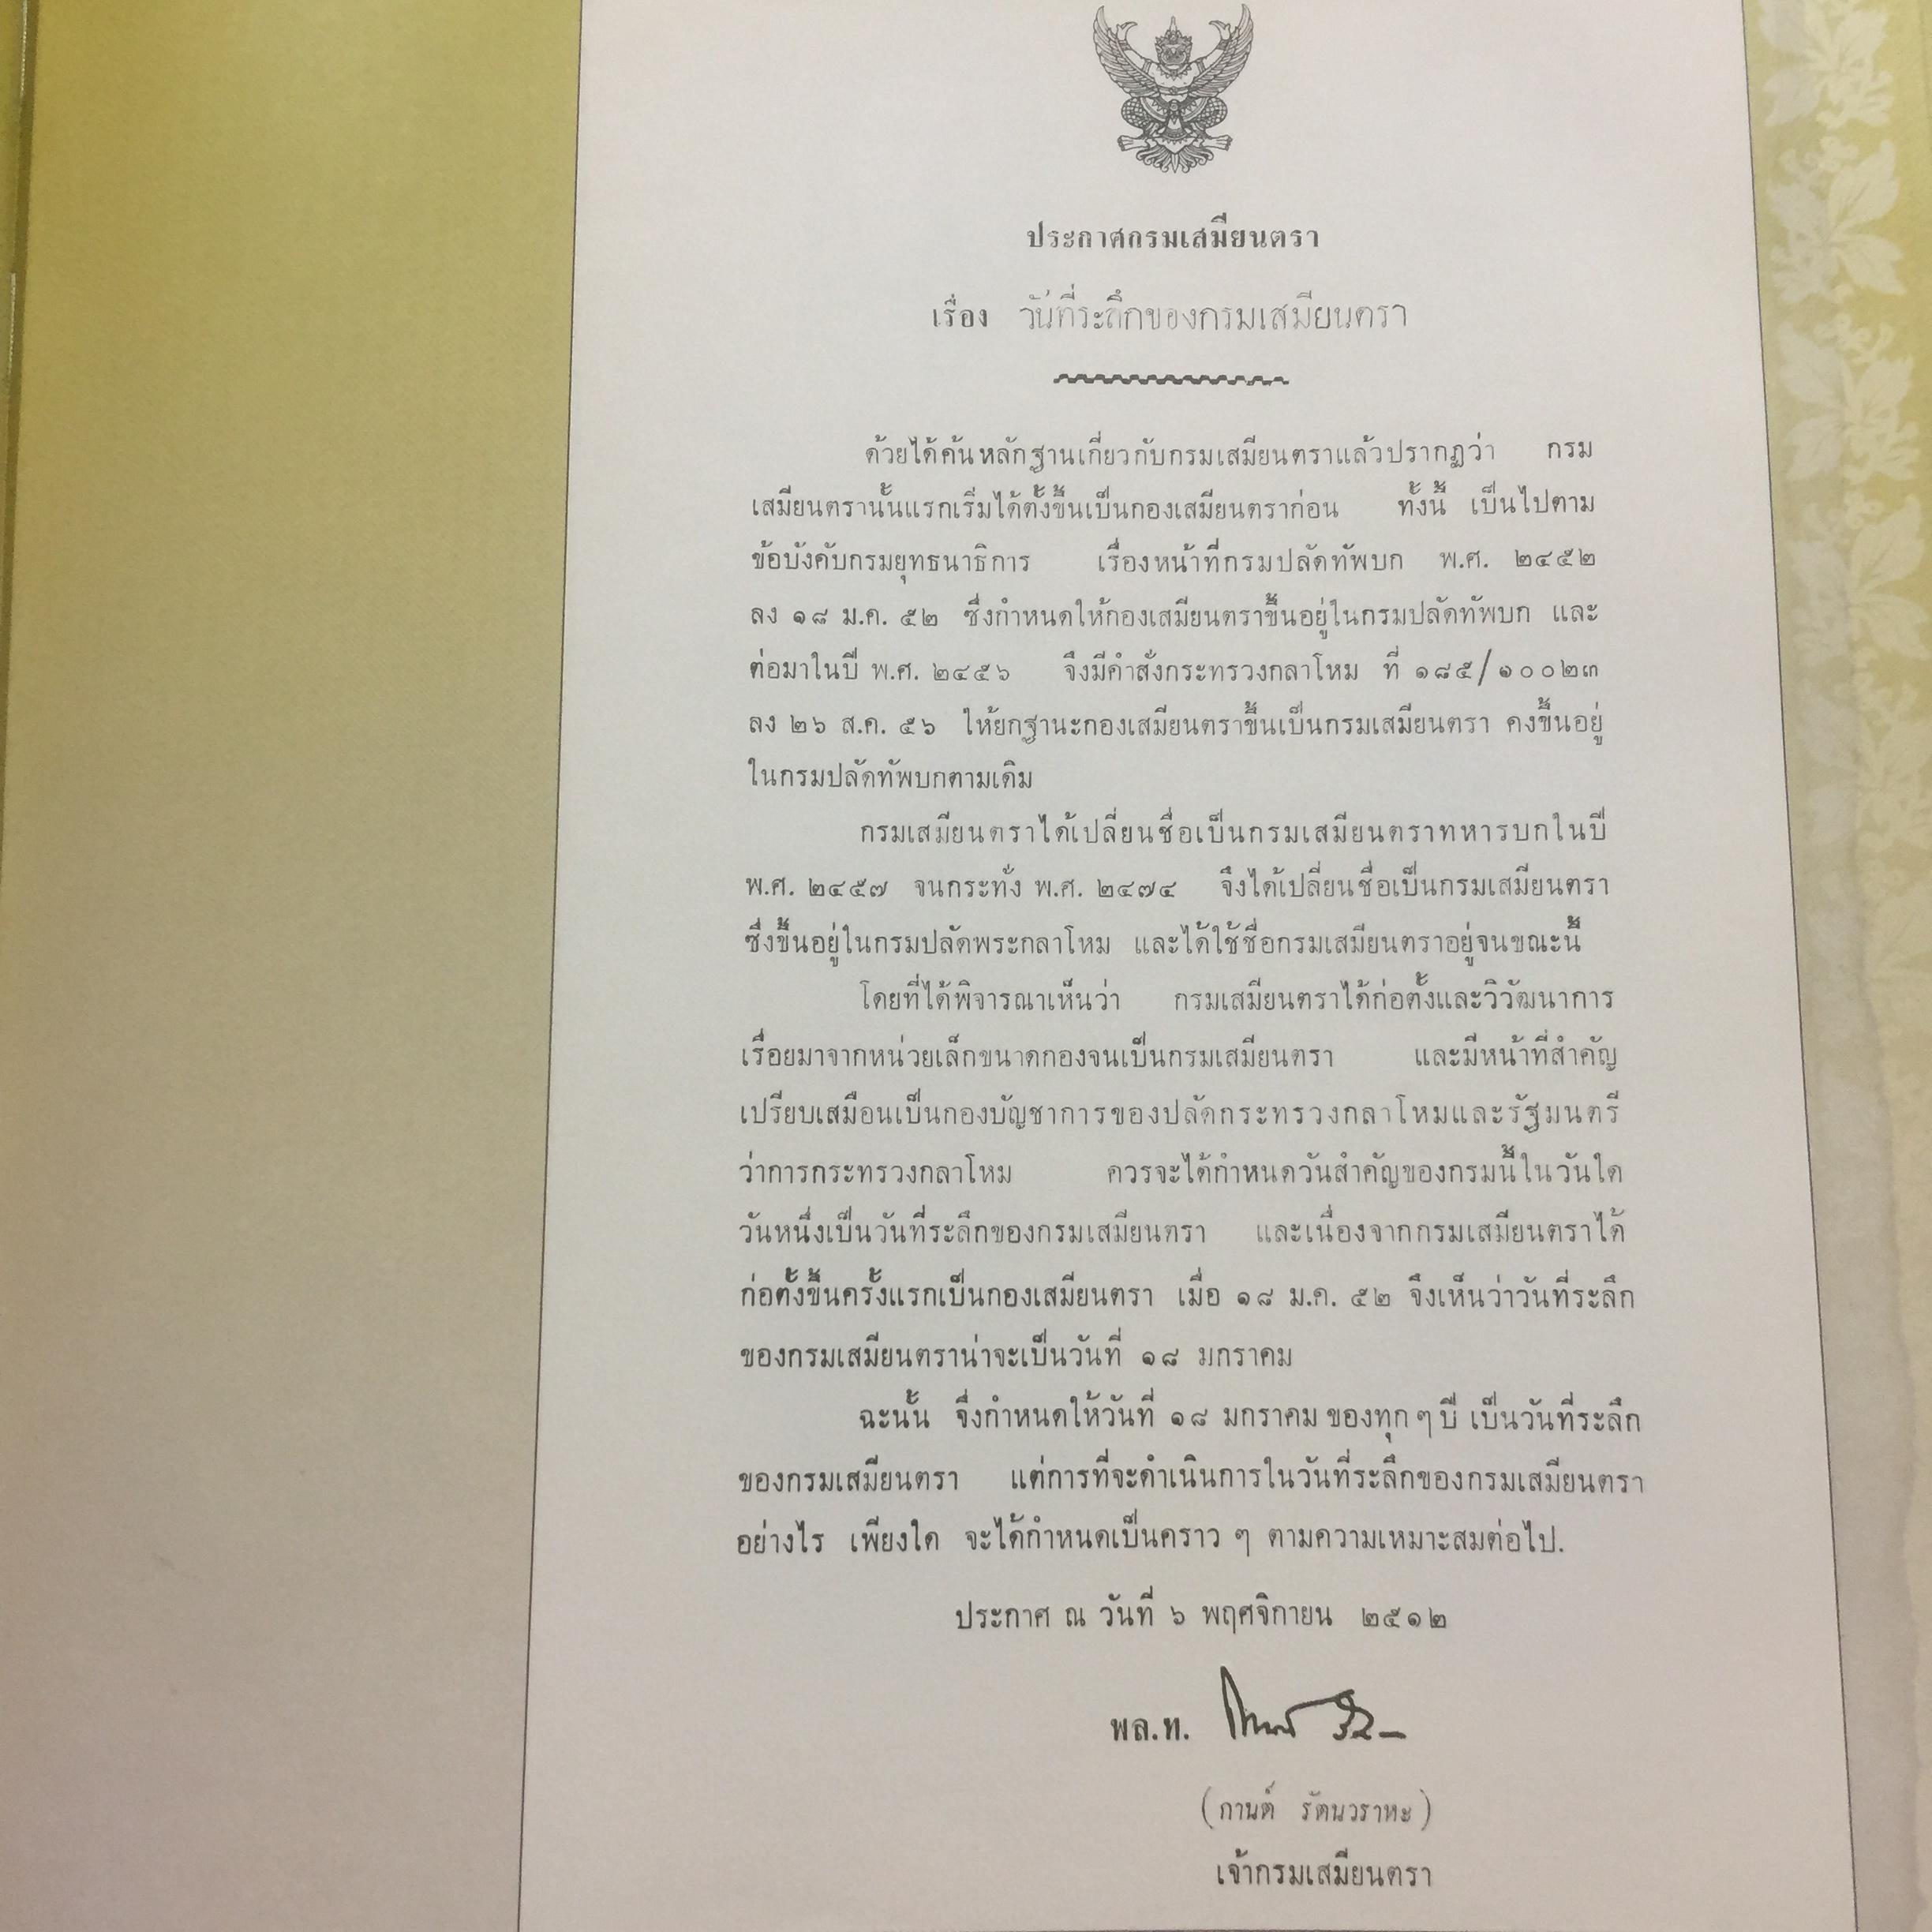 ประกาศกรมเสมียนตรา
เรื่อง วันที่ระลึกของกรมเสมียนตรา
ด้วยได้ค้นหลักฐานเกี่ยวกับกรมเสมียนตราแล้วปรากฏว่า กรม
เสมียนตรานั้นแรกเริ่มได้ตั้งขึ้นเป็นกองเสมียนตราก่อน ทั้งนี้ เป็นไปตาม
ข้อบังคับกรมยุทธนาธิการ เรื่องหน้าที่กรมปลัดทัพบก พ.ศ. ๒๔๕๒
ลง ๑๘ ม.ค. ๕๒ ซึ่งกำหนดให้กองเสมียนตราขึ้นอยู่ในกรมปลัดทัพบก และ
ต่อมาในปี พ.ศ. ๒๔๕๖ จึงมีคำสั่งกระทรวงกลาโหม ที่ ๑๘๕/๑๐๐๒๓
ลง ๒๖ ส.ค. ๕๖ ให้ยกฐานะกองเสมียนตราขึ้นเป็นกรมเสมียนตรา คงขึ้นอยู่
ในกรมปลัดทัพบกตามเดิม
กรมเสมียนตราได้เปลี่ยนชื่อเป็นกรมเสมียนตราทหารบกในปี
พ.ศ. ๒๔๕๗ จนกระทั่ง พ.ศ. ๒๔๗๔ จึงได้เปลี่ยนชื่อเป็นกรมเสมียนตรา
ซึ่งขึ้นอยู่ในกรมปลัดพระกลาโหม และได้ใช้ชื่อกรมเสมียนตราอยู่จนขณะนี้
โดยที่ได้พิจารณาเห็นว่า กรมเสมียนตราได้ก่อตั้งและวิวัฒนาการ
เรื่อยมาจากหน่วยเล็กขนาดกองจนเป็นกรมเสมียนตรา และมีหน้าที่สำคัญ
เปรียบเสมือนเป็นกองบัญชาการของปลัดกระทรวงกลาโหมและรัฐมนตรี
ว่าการกระทรวงกลาโหม ควรจะได้กำหนดวันสำคัญของกรมนี้ในวันใด
วันหนึ่งเป็นวันที่ระลึกของกรมเสมียนตรา และเนื่องจากกรมเสมียนตราได้
ก่อตั้งขึ้นครั้งแรกเป็นกองเสมียนตรา เมื่อ ๑๘ ม.ค. ๕๒ จึงเห็นว่าวันที่ระลึก
ของกรมเสมียนตราน่าจะเป็นวันที่ ๑๘ มกราคม
ฉะนั้น จึงกำหนดให้วันที่ ๑๘ มกราคม ของทุก ๆ ปี เป็นวันที่ระลึก
ของกรมเสมียนตรา แต่การที่จะดำเนินการในวันที่ระลึกของกรมเสมียนตรา
อย่างไร เพียงใด จะได้กำหนดเป็นคราว ๆ ตามความเหมาะสมต่อไป.
ประกาศ ณ วันที่ ๖ พฤศจิกายน ๒๕๑๒
พล.ท.
(กานต์ รัตนวราหะ)
เจ้ากรมเสมียนตรา